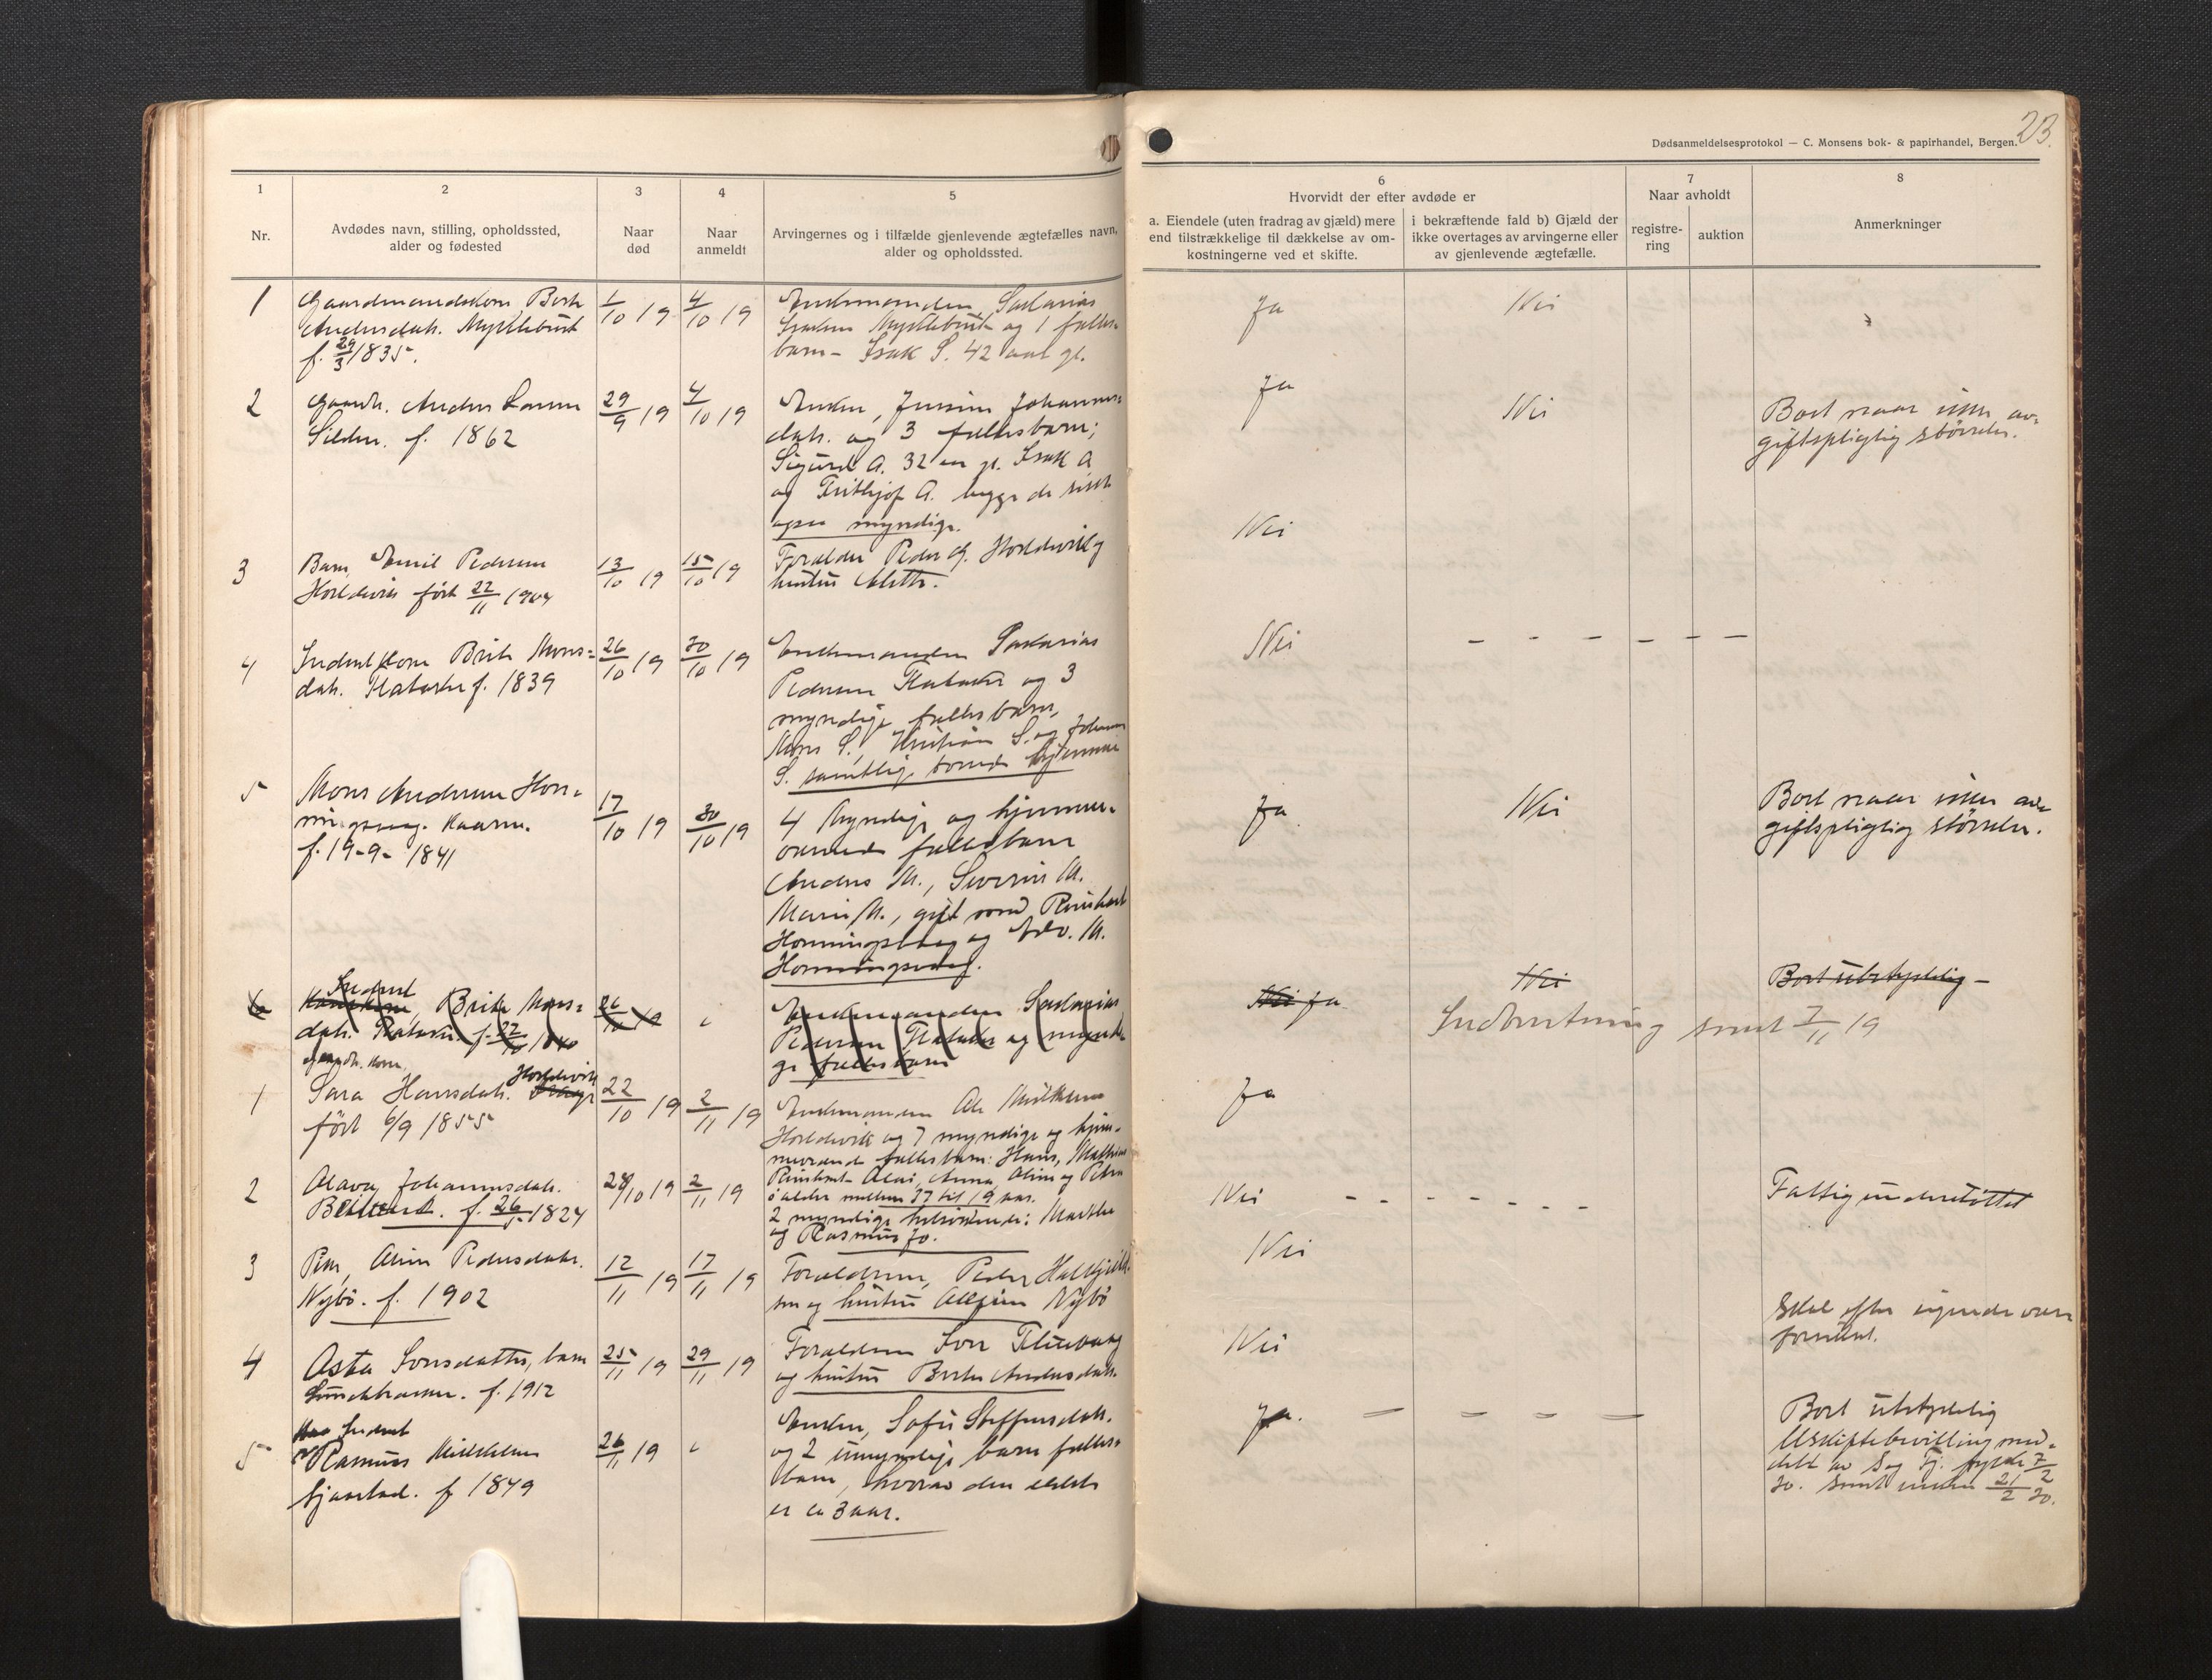 Dødsanmeldelsesprotokol — C. Monsens bok- & papirhandel, Bergen.
23.
1
Nr.
2
Avdødes navn, stilling, opholdssted,
alder og fødested
3
Naar
død
4
Naar
anmeldt
5
Arvingernes og i tilfælde gjenlevende ægtefælles navn,
alder og opholdssted.
6
Hvorvidt der efter avdøde er
a. Eiendele (uten fradrag av gjæld) mere
end tilstrækkelige til dækkelse av om-
kostningerne ved et skifte.
i bekræftende fald b) Gjæld der
ikke overtages av arvingerne eller
av gjenlevende ægtefælle.
7
Naar avholdt
registre-
ring
auktion
8
Anmerkninger
1
Gaardmandskone Berte
Andersdatr. Myklebust
f. 29/3 1835.
1/10 19
4/10 19
Enkemanden Sakarias
Isaksen Myklebust og 1 fælles-
barn - Isak S. 42 aar gl.
Ja
Nei
2
Gaardb. Anders Larsen
Silden. f. 1862
29/9 19
4/10 19
Enken, Johannes-
datr. og 3 fællesbarn;
Sigurd A. 32 aar gl. Isak A
og Frithjof A. begge de sidste
ogsaa myndige.
Ja
Nei
Bort naar ikke av-
giftspligtig størrelse.
3
Barn, Emil Pedersen
Holdevik født 22/11 1904
13/10 19
15/10 19
Forældre Peder G. Holdevik og
hustru Alette.
Nei
4
Inderstkone Brite Mons-
datr. Flatøster f. 1839
26/10 19
30/10 19
Enkemanden Sakarias
Pedersen og 3
myndige fælles barn,
Mons S., Kristian S. og Johannes
S. samtlige hjemme
Nei
- - - - - -
5
Mons Andersen Hon-
ningsvaag. Kaarm.
f. 19-9-1841
17/10 19
30/10 19
4 Myndige og hjemme-
værende fællesbarn
Anders M., Severin M.
Marie M., gift med Reinhart
Honningsvaag og M.
Honningsvaag.
Ja.
Nei
Bort naar ikke av-
giftspligtig størrelse.
6
Inderst
Brite Mons-
datr. f. 22/10 1840
26/10 19
"
Enkemanden Sakarias
Pedersen og myndi-
ge fællesbarn
Nei ja
Nei
Bort ubetydelig -
Indberetning sendt 7/11 19
1
Gaardb. kone
Sara Hansdatr. Holdevik
født 6/9 1855
22/10 19
2/11 19
Enkemanden Ole Mikkelsen
Holdevik og 7 myndige og hjem-
meværende fællesbarn: Hans, Mathias
Reinhart Anna, Oline og Petra
i alder mellem 37 til 19 aar.
Ja
2
Olava Johannesdatr.
f. 26/5 1824
28/10 19
2/11 19
2 myndige helsøskende: Marthe
og Rasmus Jo.
Nei
- - - - - - -
Fattigunderstøttet
3
Oline Pedersdatr.
Nybø. f. 1902
12/11 19
17/11 19
Forældrene, Peder
sen og hustru Nybø
Nei
Skal efter sigende være
formuet.
4
Asta Iversdatter, barn
f. 1912
25/11 19
29/11 19
Forældrene Iver
og hustru Berte Andersdatr.
Nei
5
Inderst
Rasmus Mikkelsen
Sjaastad. f 1849
26/11 19
"
Enken, Sofie Steffensdatr.
og 2 umyndige barn fælles-
barn, hvorav den ældste
er ca 3 aar.
Ja.
- - - -
Bort ubetydelig
Uskiftebevilling med-
delt av Sog. fj. fylke 7/2
20. Sendt enken 21/2 20.